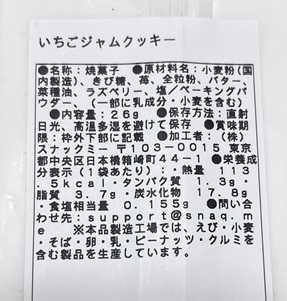 いちごジャムクッキー
●名称：焼菓子　●原材料名：小麦粉（国
内製造）、きび糖、苺、全粒粉、バター、
菜種油、ラズベリー、塩／ベーキングパ
ウダー、（一部に乳成分・小麦を含む）
●内容量：２６ｇ　●保存方法：直射
日光、高温多湿を避けて保存　●賞味期
限：枠外下部に記載　●加工者：（株）
スナックミー　〒１０３－００１５　東京
都中央区日本橋箱崎町４４－１　●栄養成
分表示（１袋あたり）：・熱量　１１３．
５ｋｃａｌ・タンパク質　１．３ｇ・
脂質　３．７ｇ・炭水化物　１７．８ｇ
・食塩相当量　０．１５５ｇ　●問い合
わせ先：ｓｕｐｐｏｒｔ＠ｓｎａｑ．ｍ
ｅ　※本品製造工場では、えび・小麦
・そば・卵・乳・ピーナッツ・クルミを
含む製品を生産しています。